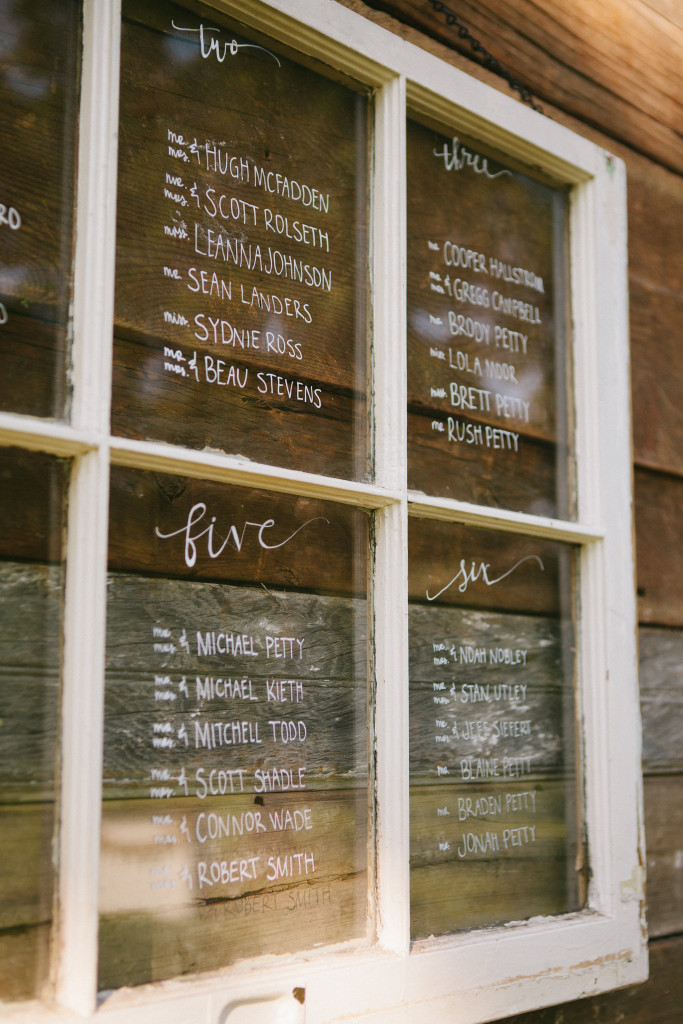 RO
two
mr. & mrs. HUGH MCFADDEN
mr. & mrs. SCOTT ROLSETH
mrs. LEANNA JOHNSON
mr. SEAN LANDERS
miss. SYDNIE ROSS
mr. & mrs. BEAU STEVENS
three
mr. COOPER HALLSTROM
mr. & mrs. GREGG CAMPBELL
mr. BRODY PETTY
miss. LOLA MOOR
mr. BRETT PETTY
mr. RUSH PETTY
five
mr. & mrs. MICHAEL PETTY
mr. & mrs. MICHAEL KIETH
mr. & mrs. MITCHELL TODD
mr. & mrs. SCOTT SHADLE
mr. & mrs. CONNOR WADE
mr. & mrs. ROBERT SMITH
six
mr. & mrs. NOAH NOBLEY
mr. & mrs. STAN UTLEY
mr. & mrs. JEFF SIEFERT
mr. BLAINE PETTY
mr. BRADEN PETTY
mr. JONAH PETTY